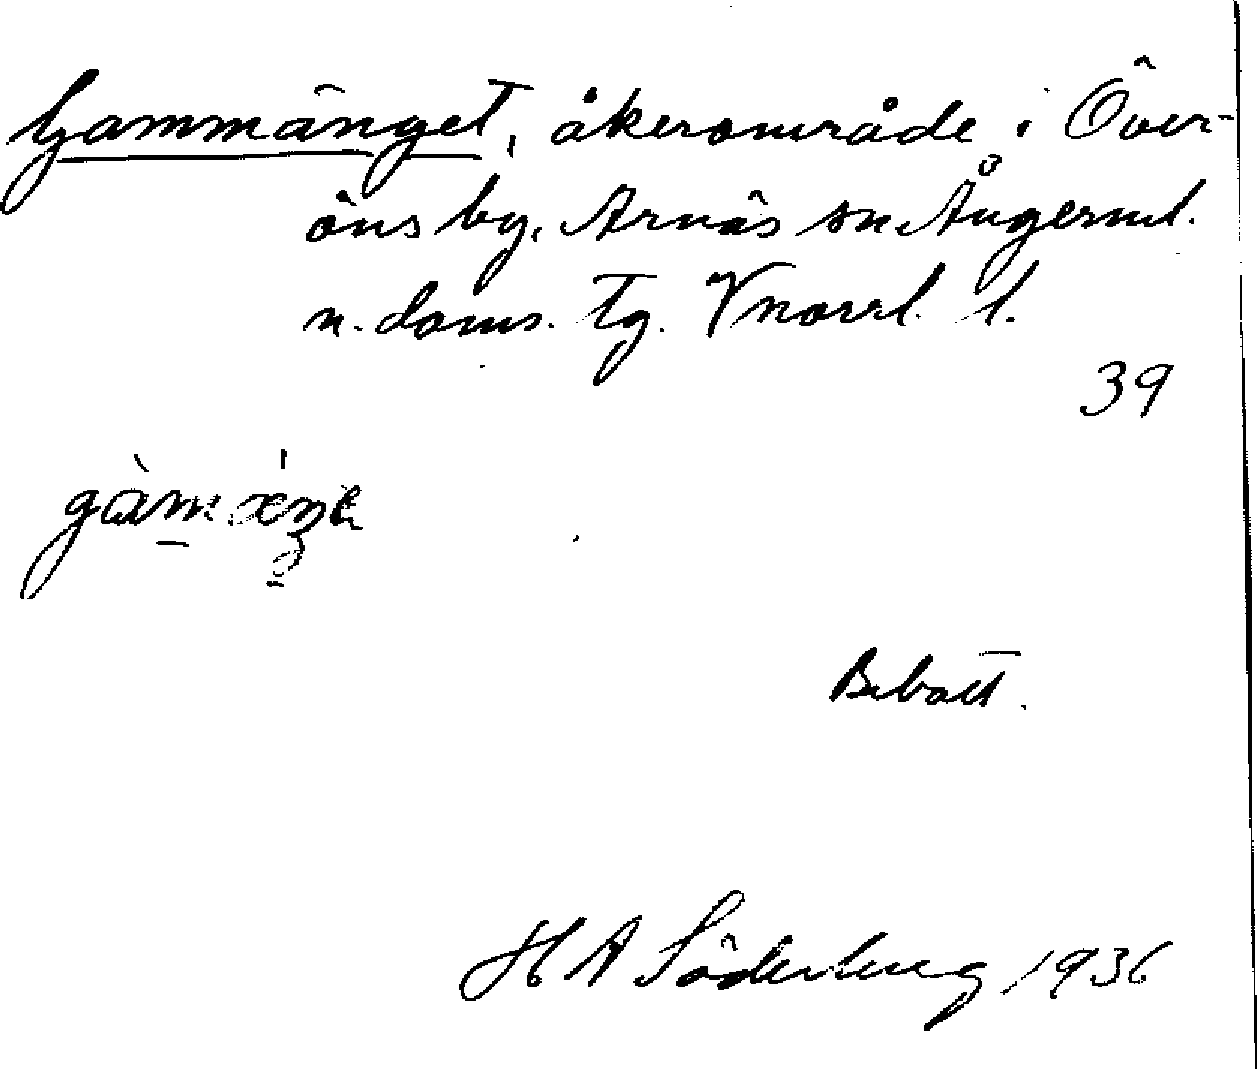 Gammänget, åkerområde i Över-
öns by, Arnäs sn Ångerml.
n. doms. tg. Vnorrl. l.
39
Bebott.
H A Söderberg 1936